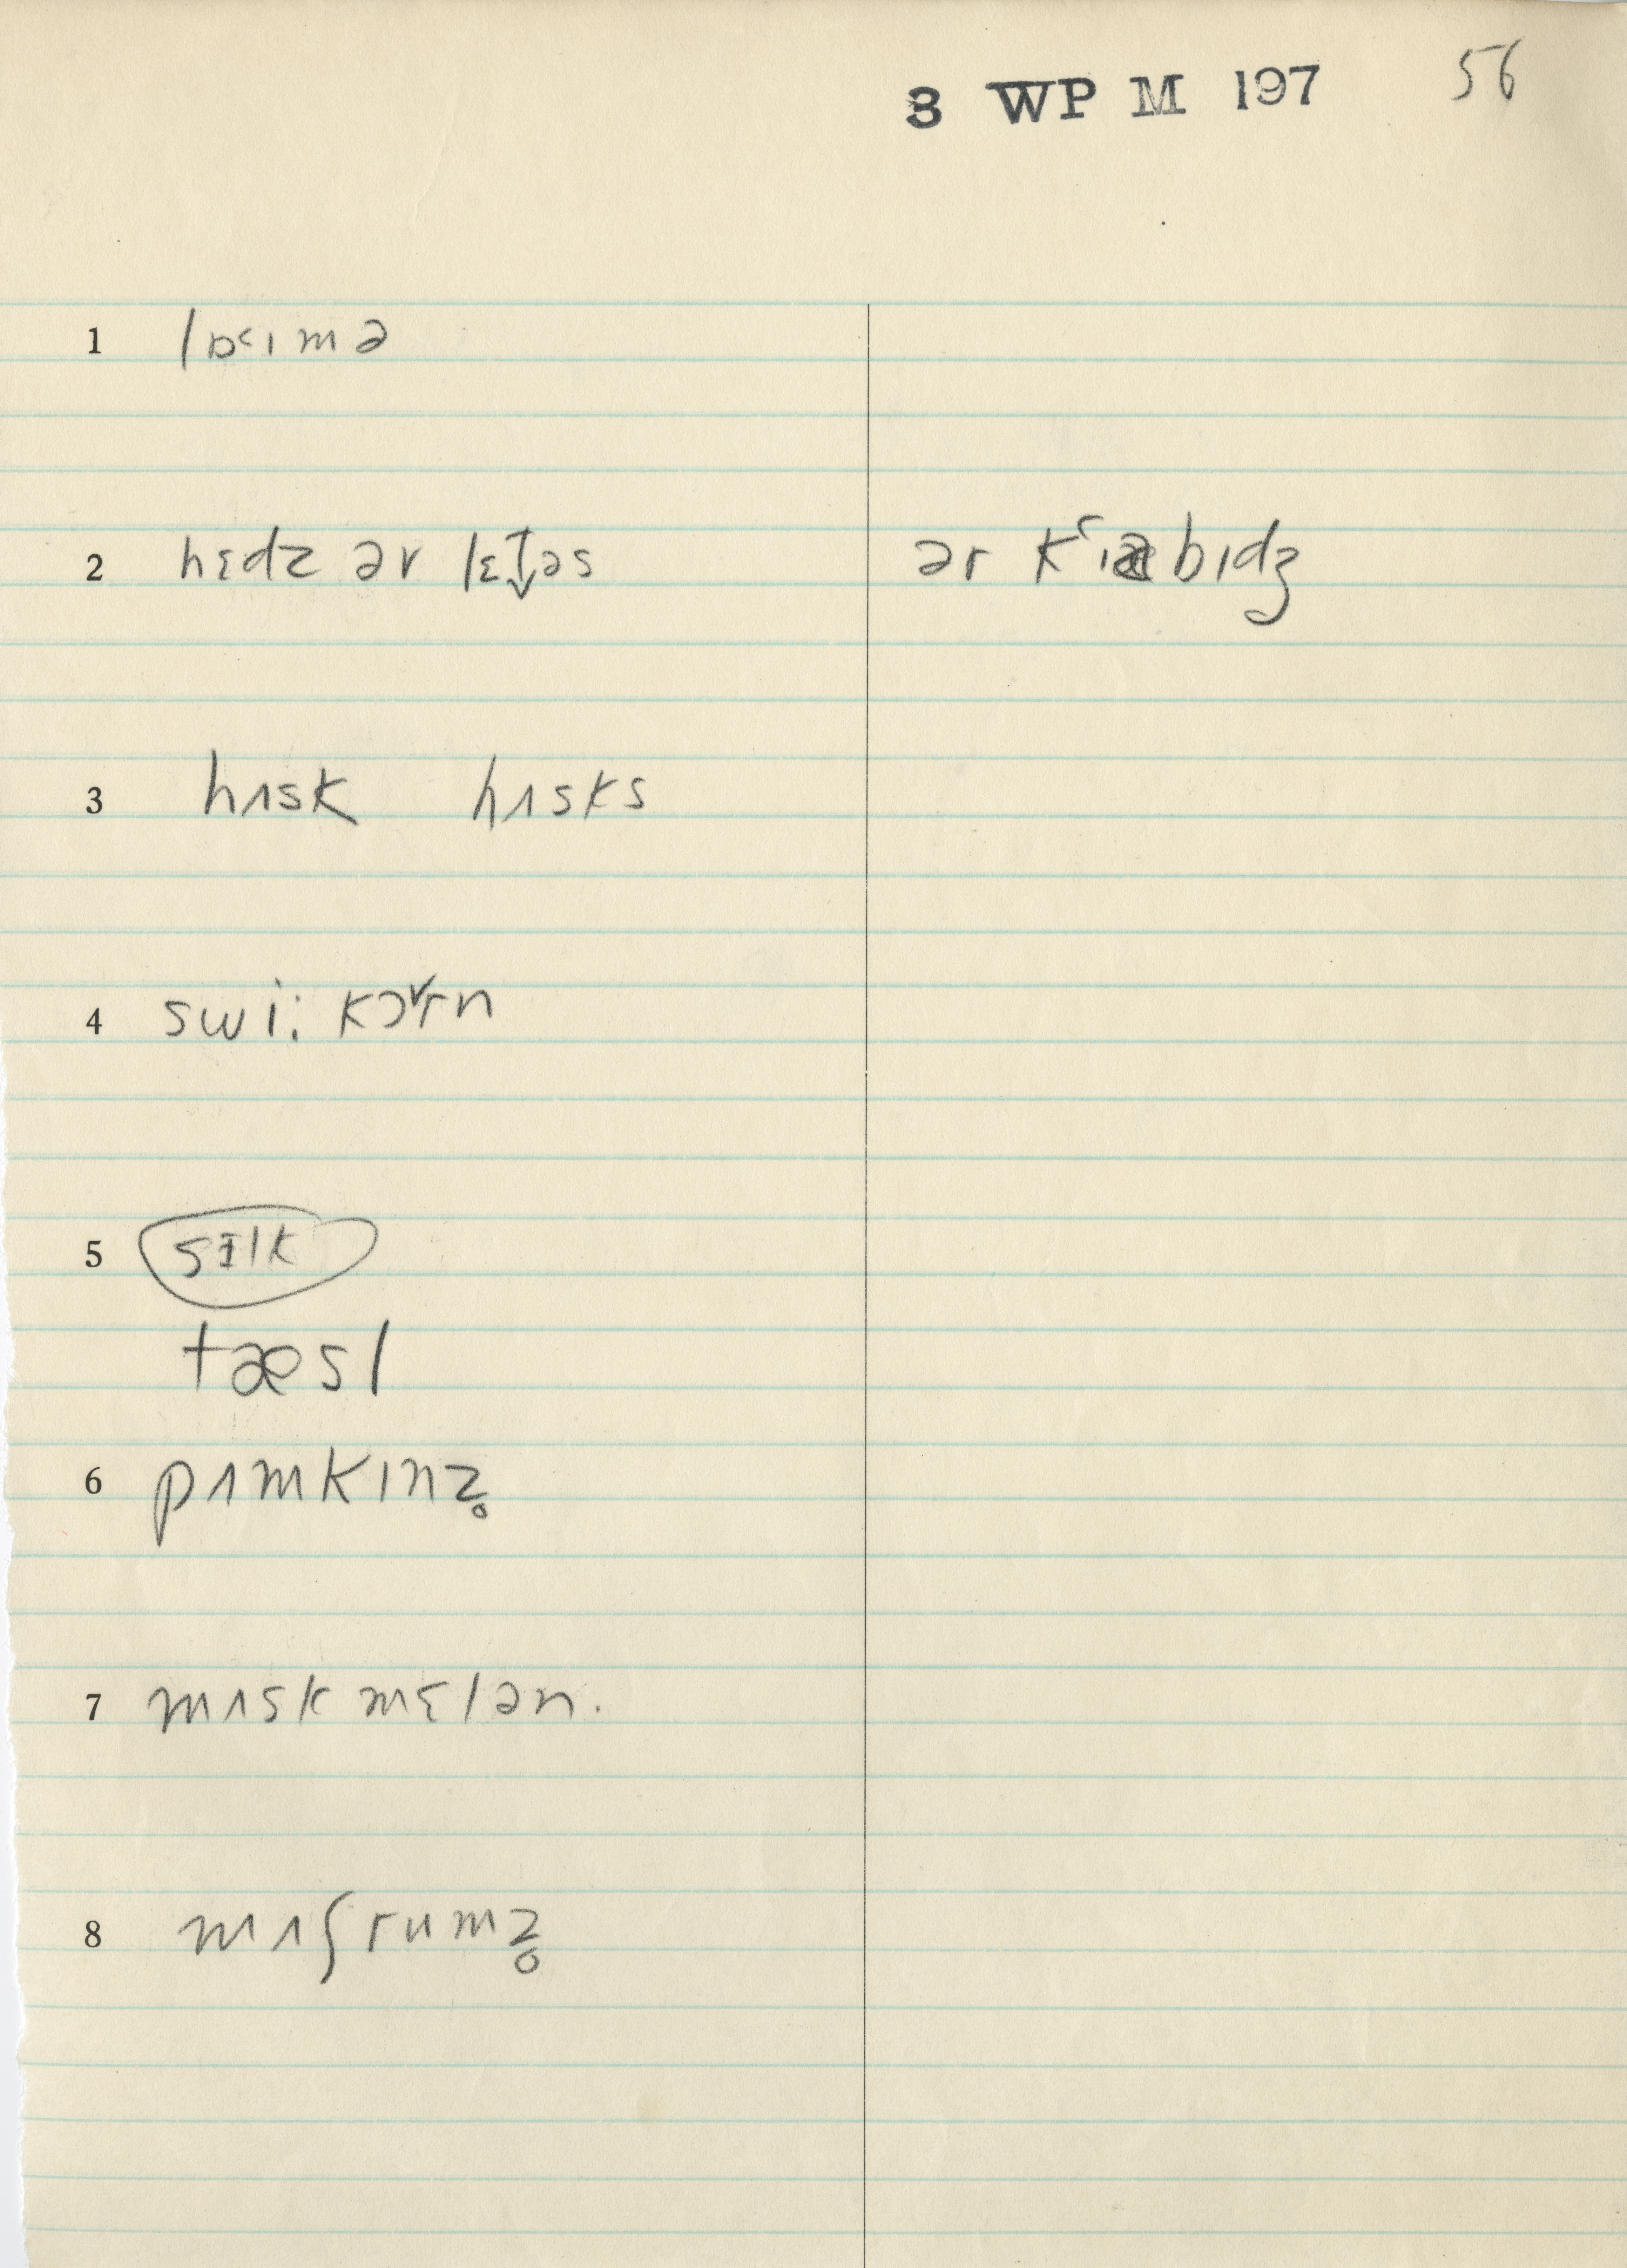 3 WP M 197 56
1 lɒ˂ɪmə
2 hɛdz ər lɛt̬əs ər kʿɪæbɪdʒ
3 hʌsk hʌsks
4 swi: kɔ˅rn
5 sɪlk
tæsl
6 pʌmkɪnz̥
7 mʌskmɛlən.
8 mʌʃrumz̥